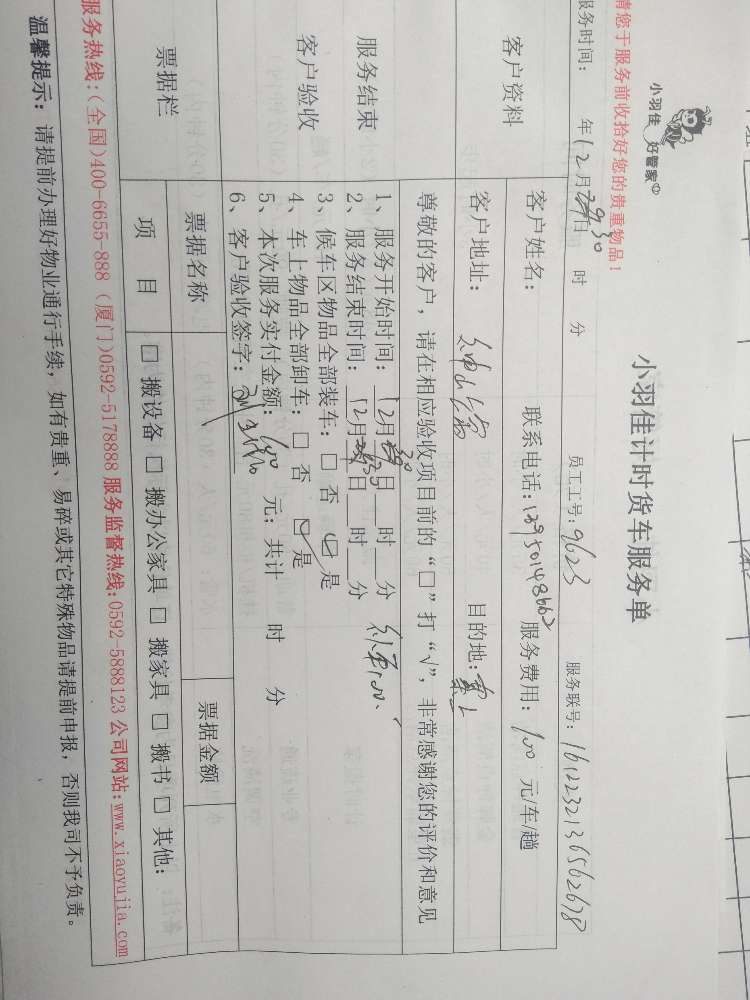 小羽佳 好管家
小羽佳计时货车服务单
请您于服务前收拾好您的贵重物品！
服务时间： 年12月30日 时 分 员工工号：9623 服务联号：1612232136562678
客户资料
客户姓名： 联系电话：13950148662 服务费用：100 元/车/趟
客户地址： 目的地：
尊敬的客户，请在相应验收项目前的“□”打“√”，非常感谢您的评价和意见
服务结束
客户验收
1、服务开始时间：12月30日 时 分
2、服务结束时间：12月30日 时 分
3、候车区物品全部装车：□ 否 ☑ 是
4、车上物品全部卸车：□ 否 ☑ 是
5、本次服务实付金额：100 元；共计 时 分
6、客户验收签字：
票据栏
票据名称 票据金额
项 目 □ 搬设备 □ 搬办公家具 □ 搬家具 □ 搬书 □ 其他：
服务热线：(全国)400-6655-888 (厦门)0592-5178888 服务监督热线：0592-5888123 公司网站：www.xiaoyujia.com
温馨提示： 请提前办理好物业通行手续，如有贵重、易碎或其它特殊物品请提前申报，否则我司不予负责。